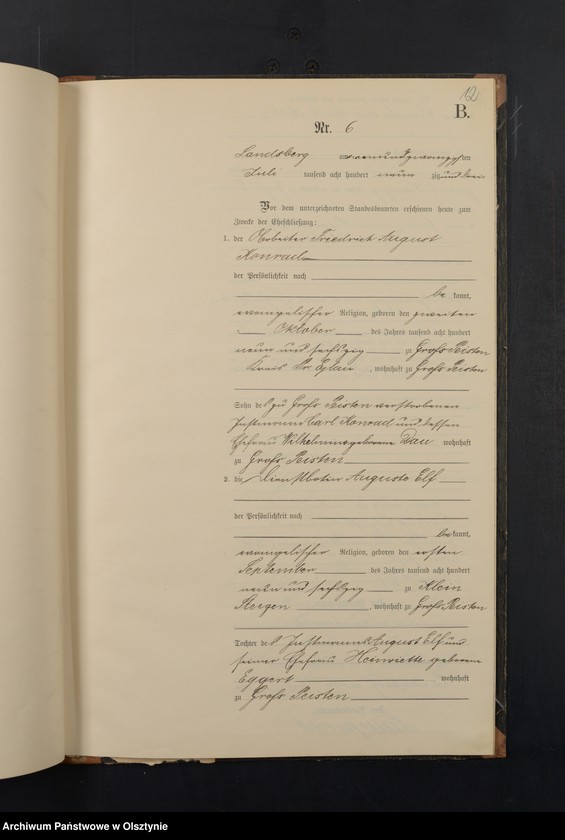 12
B.
Nr. 6
Landsberg am zwanzigsten
Juli tausend acht hundert neunzig und drei
Vor dem unterzeichneten Standesbeamten erschienen heute zum
Zwecke der Eheschließung:
1. der Arbeiter Friedrich August
Konrad
der Persönlichkeit nach
bekannt,
evangelischer Religion, geboren den zweiten
Oktober des Jahres tausend acht hundert
neun und sechszig zu Groß Peisten
Kreis Pr. Eylau, wohnhaft zu Groß Peisten
Sohn des zu Groß Peisten verstorbenen
Instmanns Carl Konrad und dessen
Ehefrau Wilhelmine geborene Dau wohnhaft
zu Groß Peisten
2. die Dienstbotin Auguste Elf
der Persönlichkeit nach
bekannt,
evangelischer Religion, geboren den ersten
September des Jahres tausend acht hundert
neun und sechszig zu Klein
Steegen, wohnhaft zu Groß Peisten
Tochter des Instmanns August Elf und
seiner Ehefrau Henriette geborene
Eggert wohnhaft
zu Groß Peisten
Archiwum Państwowe w Olsztynie